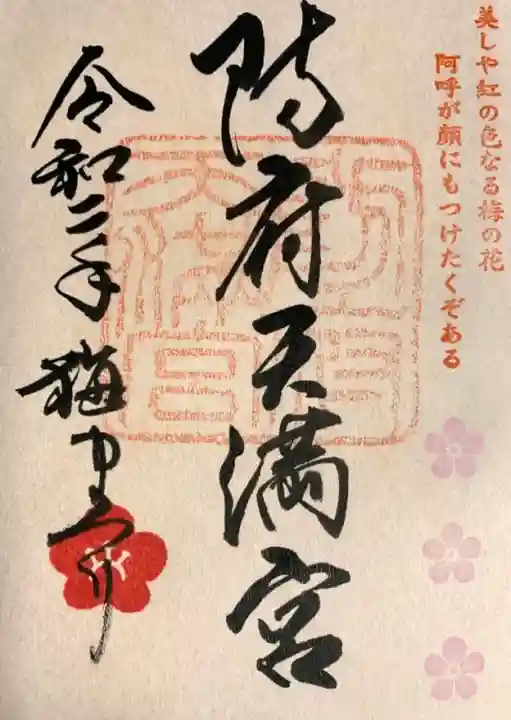 美しや紅の色なる梅の花
阿呼が顔にもつけたくぞある
防府天満宮
令和二年 梅